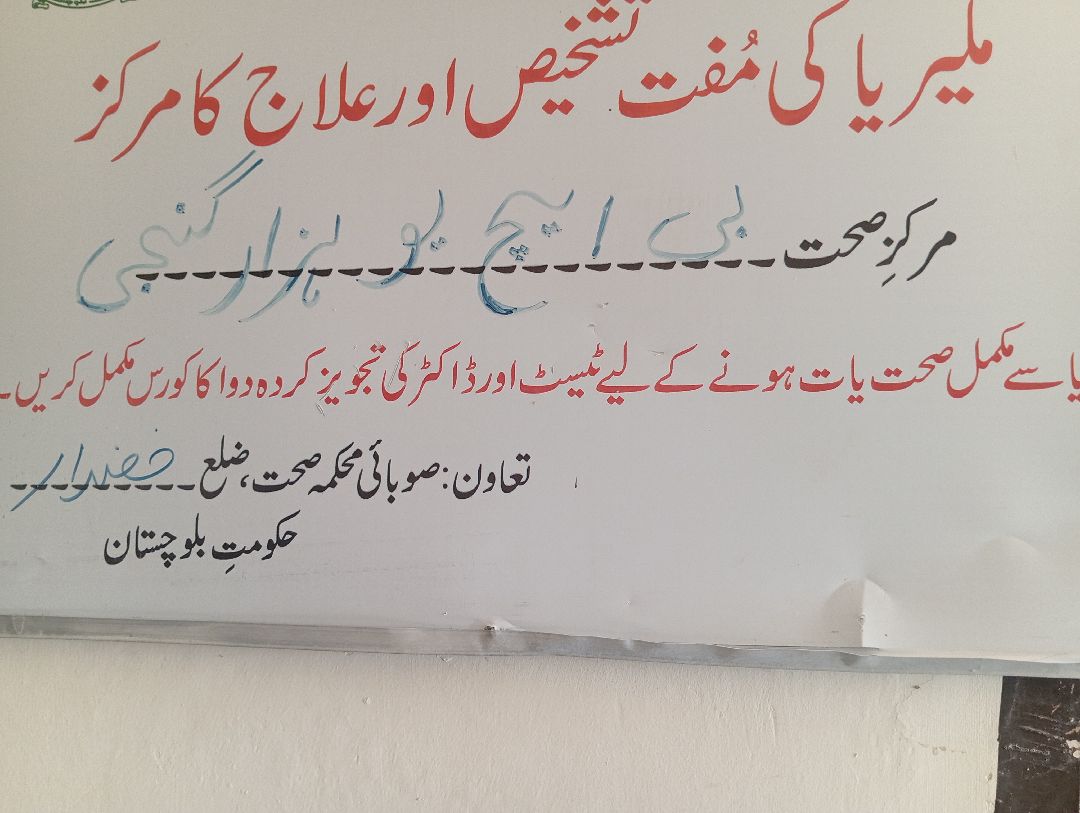 ملیریا کی مُفت تشخیص اور علاج کا مرکز
مرکزِ صحت بی ایچ یو ہزار گنجی
یا سے مکمل صحت یات ہونے کے لیے ٹیسٹ اور ڈاکٹر کی تجویز کردہ دوا کا کورس مکمل کریں۔
تعاون: صوبائی محکمہ صحت، ضلع خضدار
حکومتِ بلوچستان